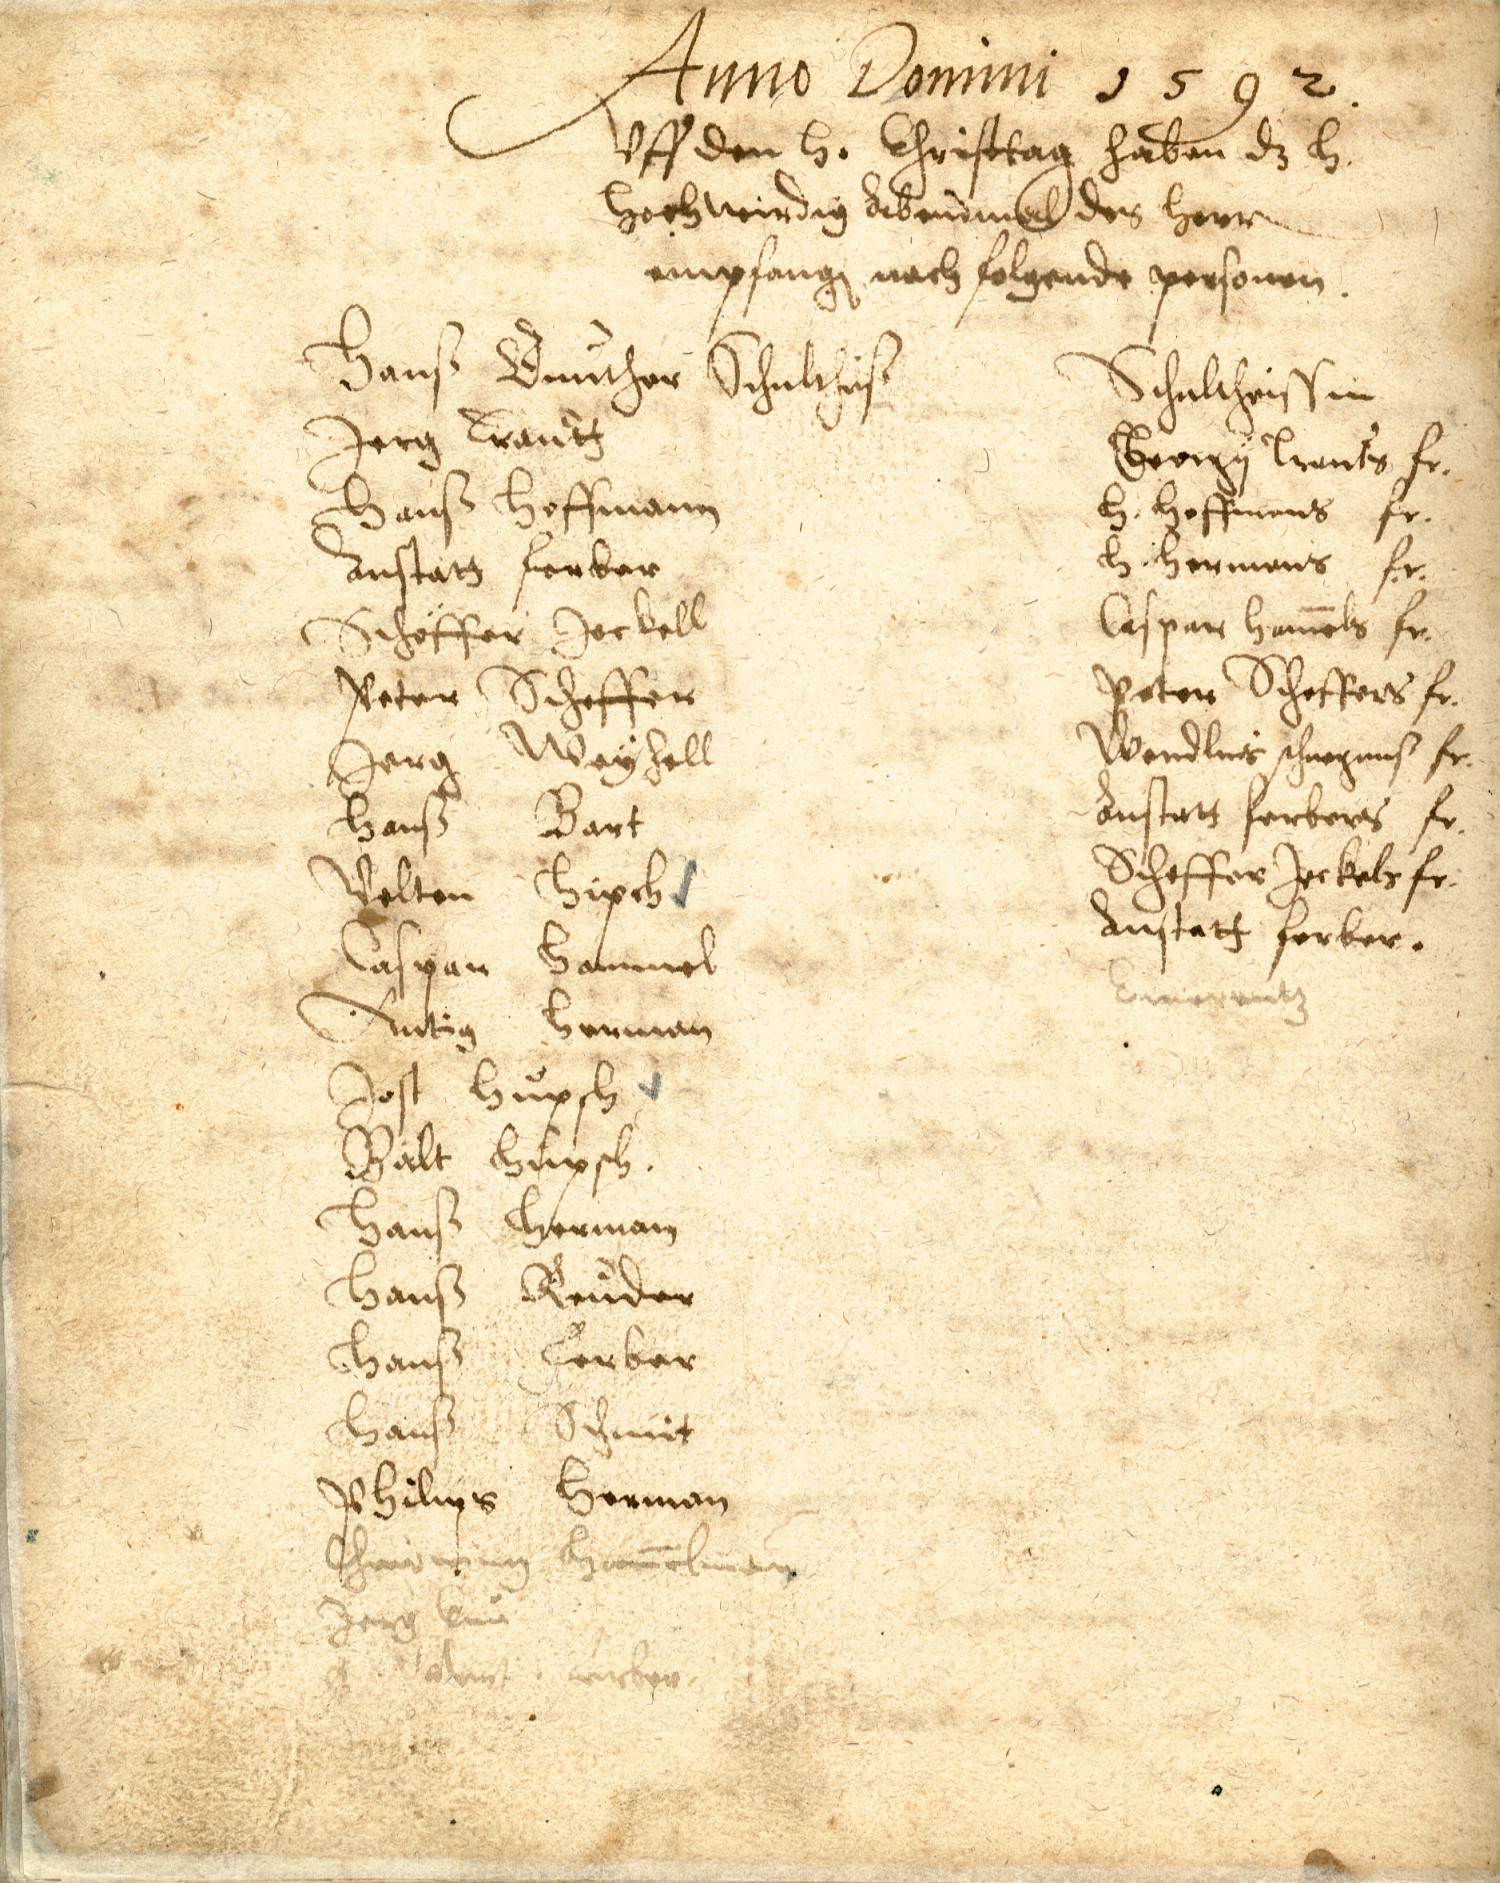 Anno Domini 1592.
Vff den H. Christtag haben dz H.
Hochwirdig Abendmal des Herr
empfang nachfolgende personen.
Hanß Günther Schultheiß
Jerg Crautz
Hanß Hoffmann
Anstatt ferber
Schöffer Jeckell
Peter Scheffer
Jerg Weyhell
Hanß Bart
Velten Hipsch
Caspar Hammel
Antig Herman
Jost Hüpsch
Balt Hüpsch.
Hanß Herman
Hanß Reuder
Hanß Ferber
Hanß Schmit
Philips Herman
Hammelman
Jerg
Schultheissin
Georgij Crauts fr.
H. Hoffmans fr.
H. Hermans fr.
Caspar Ham̄els fr.
Peter Scheffers fr.
fr.
Anstatt ferbers fr.
Scheffer Jeckels fr.
Anstatt ferber.